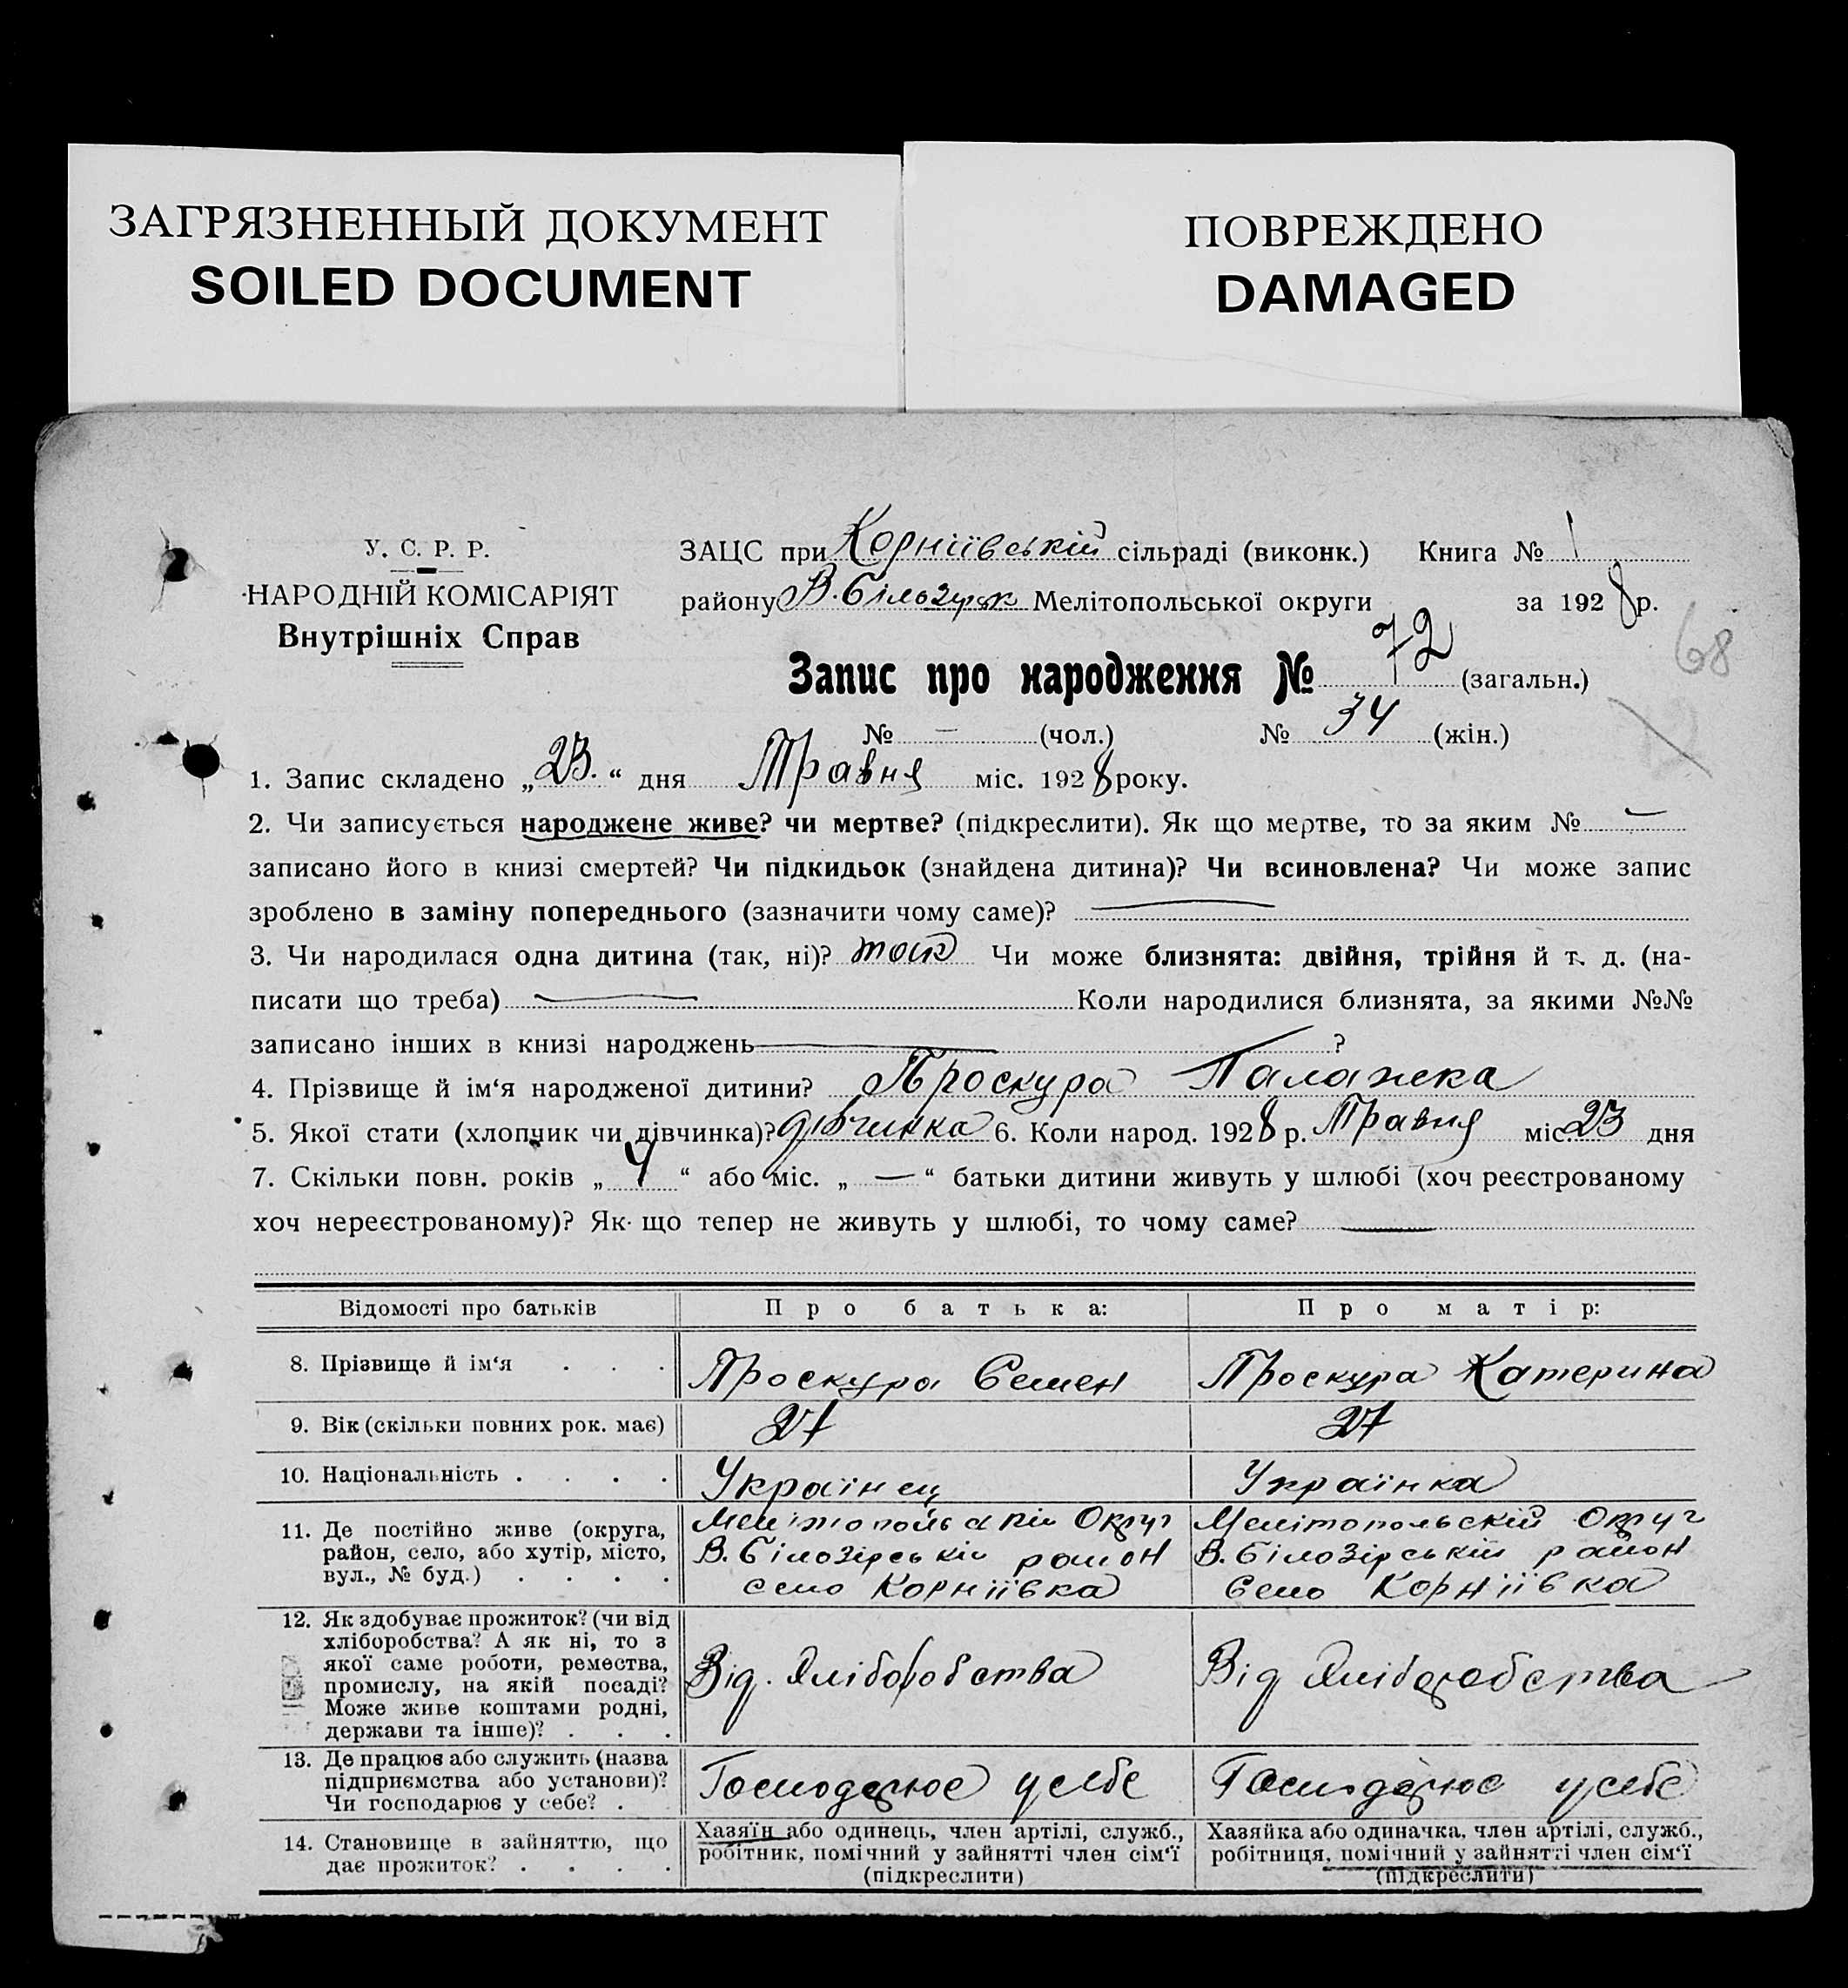 ЗАГРЯЗНЕННЫЙ ДОКУМЕНТ
SOILED DOCUMENT
ПОВРЕЖДЕНО
DAMAGED
У. С. Р. Р.
НАРОДНІЙ КОМІСАРІЯТ
Внутрішніх Справ
ЗАЦС при Корніївській сільраді (виконк.) Книга № 1
району В. Білозірськ Мелітопольської округи за 1928 р.
68
Запис про народження № 72 (загальн.)
№ – (чол.) № 34 (жін.)
1. Запис складено „23.“ дня Травня міс. 1928 року.
2. Чи записується народжене живе? чи мертве? (підкреслити). Як що мертве, то за яким № –
записано його в книзі смертей? Чи підкидьок (знайдена дитина)? Чи всиновлена? Чи може запис
зроблено в заміну попереднього (зазначити чому саме)? —
3. Чи народилася одна дитина (так, ні)? так Чи може близнята: двійня, трійня й т. д. (на-
писати що треба) — Коли народилися близнята, за якими №№
записано інших в книзі народжень — ?
4. Прізвище й ім‘я народженої дитини? Проскура Палажка
5. Якої стати (хлопчик чи дівчинка)? дівчинка 6. Коли народ. 1928 р. Травня міс. 23 дня
7. Скільки повн. років „4“ або міс. „—“ батьки дитини живуть у шлюбі (хоч реєстрованому
хоч нереєстрованому)? Як що тепер не живуть у шлюбі, то чому саме? —
Відомості про батьків Про батька: Про матір:
8. Прізвище й ім‘я . . . Проскура Семен Проскура Катерина
9. Вік (скільки повних рок. має) 27 27
10. Національність . . . . Українец Українка
11. Де постійно живе (округа,
район, село, або хутір, місто,
вул., № буд.) . . . .
Мелітопольскій Округ
В. Білозірській район
село Корніївка
Мелітопольскій Округ
В. Білозірській район
Село Корніївка
12. Як здобуває прожиток? (чи від
хліборобства? А як ні, то з
якої саме роботи, ремества,
промислу, на якій посаді?
Може живе коштами родні,
держави та інше)? . . .
Від. Хліборобства
Від Хліборобства
13. Де працює або служить (назва
підприємства або установи)?
Чи господарює у себе? .
Господарює у себе
Господарює у себе
14. Становище в зайняттю, що
дає прожиток? . . . .
Хазяїн або одинець, член артілі, служб.,
робітник, помічний у зайнятті член сім‘ї
(підкреслити)
Хазяйка або одиначка, член артілі, служб.,
робітниця, помічний у зайнятті член сім‘ї
(підкреслити)